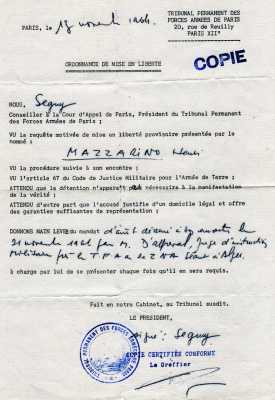 TRIBUNAL PERMANENT DES
FORCES ARMÉES DE PARIS
20, rue de Reuilly
PARIS XII°
PARIS, le 17 novembre 1964.
COPIE
ORDONNANCE DE MISE EN LIBERTE
NOUS, Segny
Conseiller à la Cour d'Appel de Paris, Président du Tribunal Permanent
des Forces Armées de Paris ;
VU la requête motivée de mise en liberté provisoire présentée par le
nommé :
MAZZARINO Henri
VU la procédure suivie à son encontre ;
VU l'article 67 du Code de Justice Militaire pour l'Armée de Terre ;
ATTENDU que la détention n'apparaît pas nécessaire à la manifestation
de la vérité ;
ATTENDU d'autre part que l'accusé justifie d'un domicile légal et offre
des garanties suffisantes de représentation ;
DONNONS MAIN LEVEE du mandat d'arrêt décerné le
21 novembre 1961 par M. juge d'instruction
militaire près le T P A de Z N A à Alger.
à charge par lui de se présenter chaque fois qu'il en sera requis.
Fait en notre Cabinet, au Tribunal susdit.
LE PRESIDENT,
Signé : Segny
COPIE CERTIFIÉE CONFORME
Le Greffier
TRIBUNAL PERMANENT DES FORCES ARMÉES DE PARIS